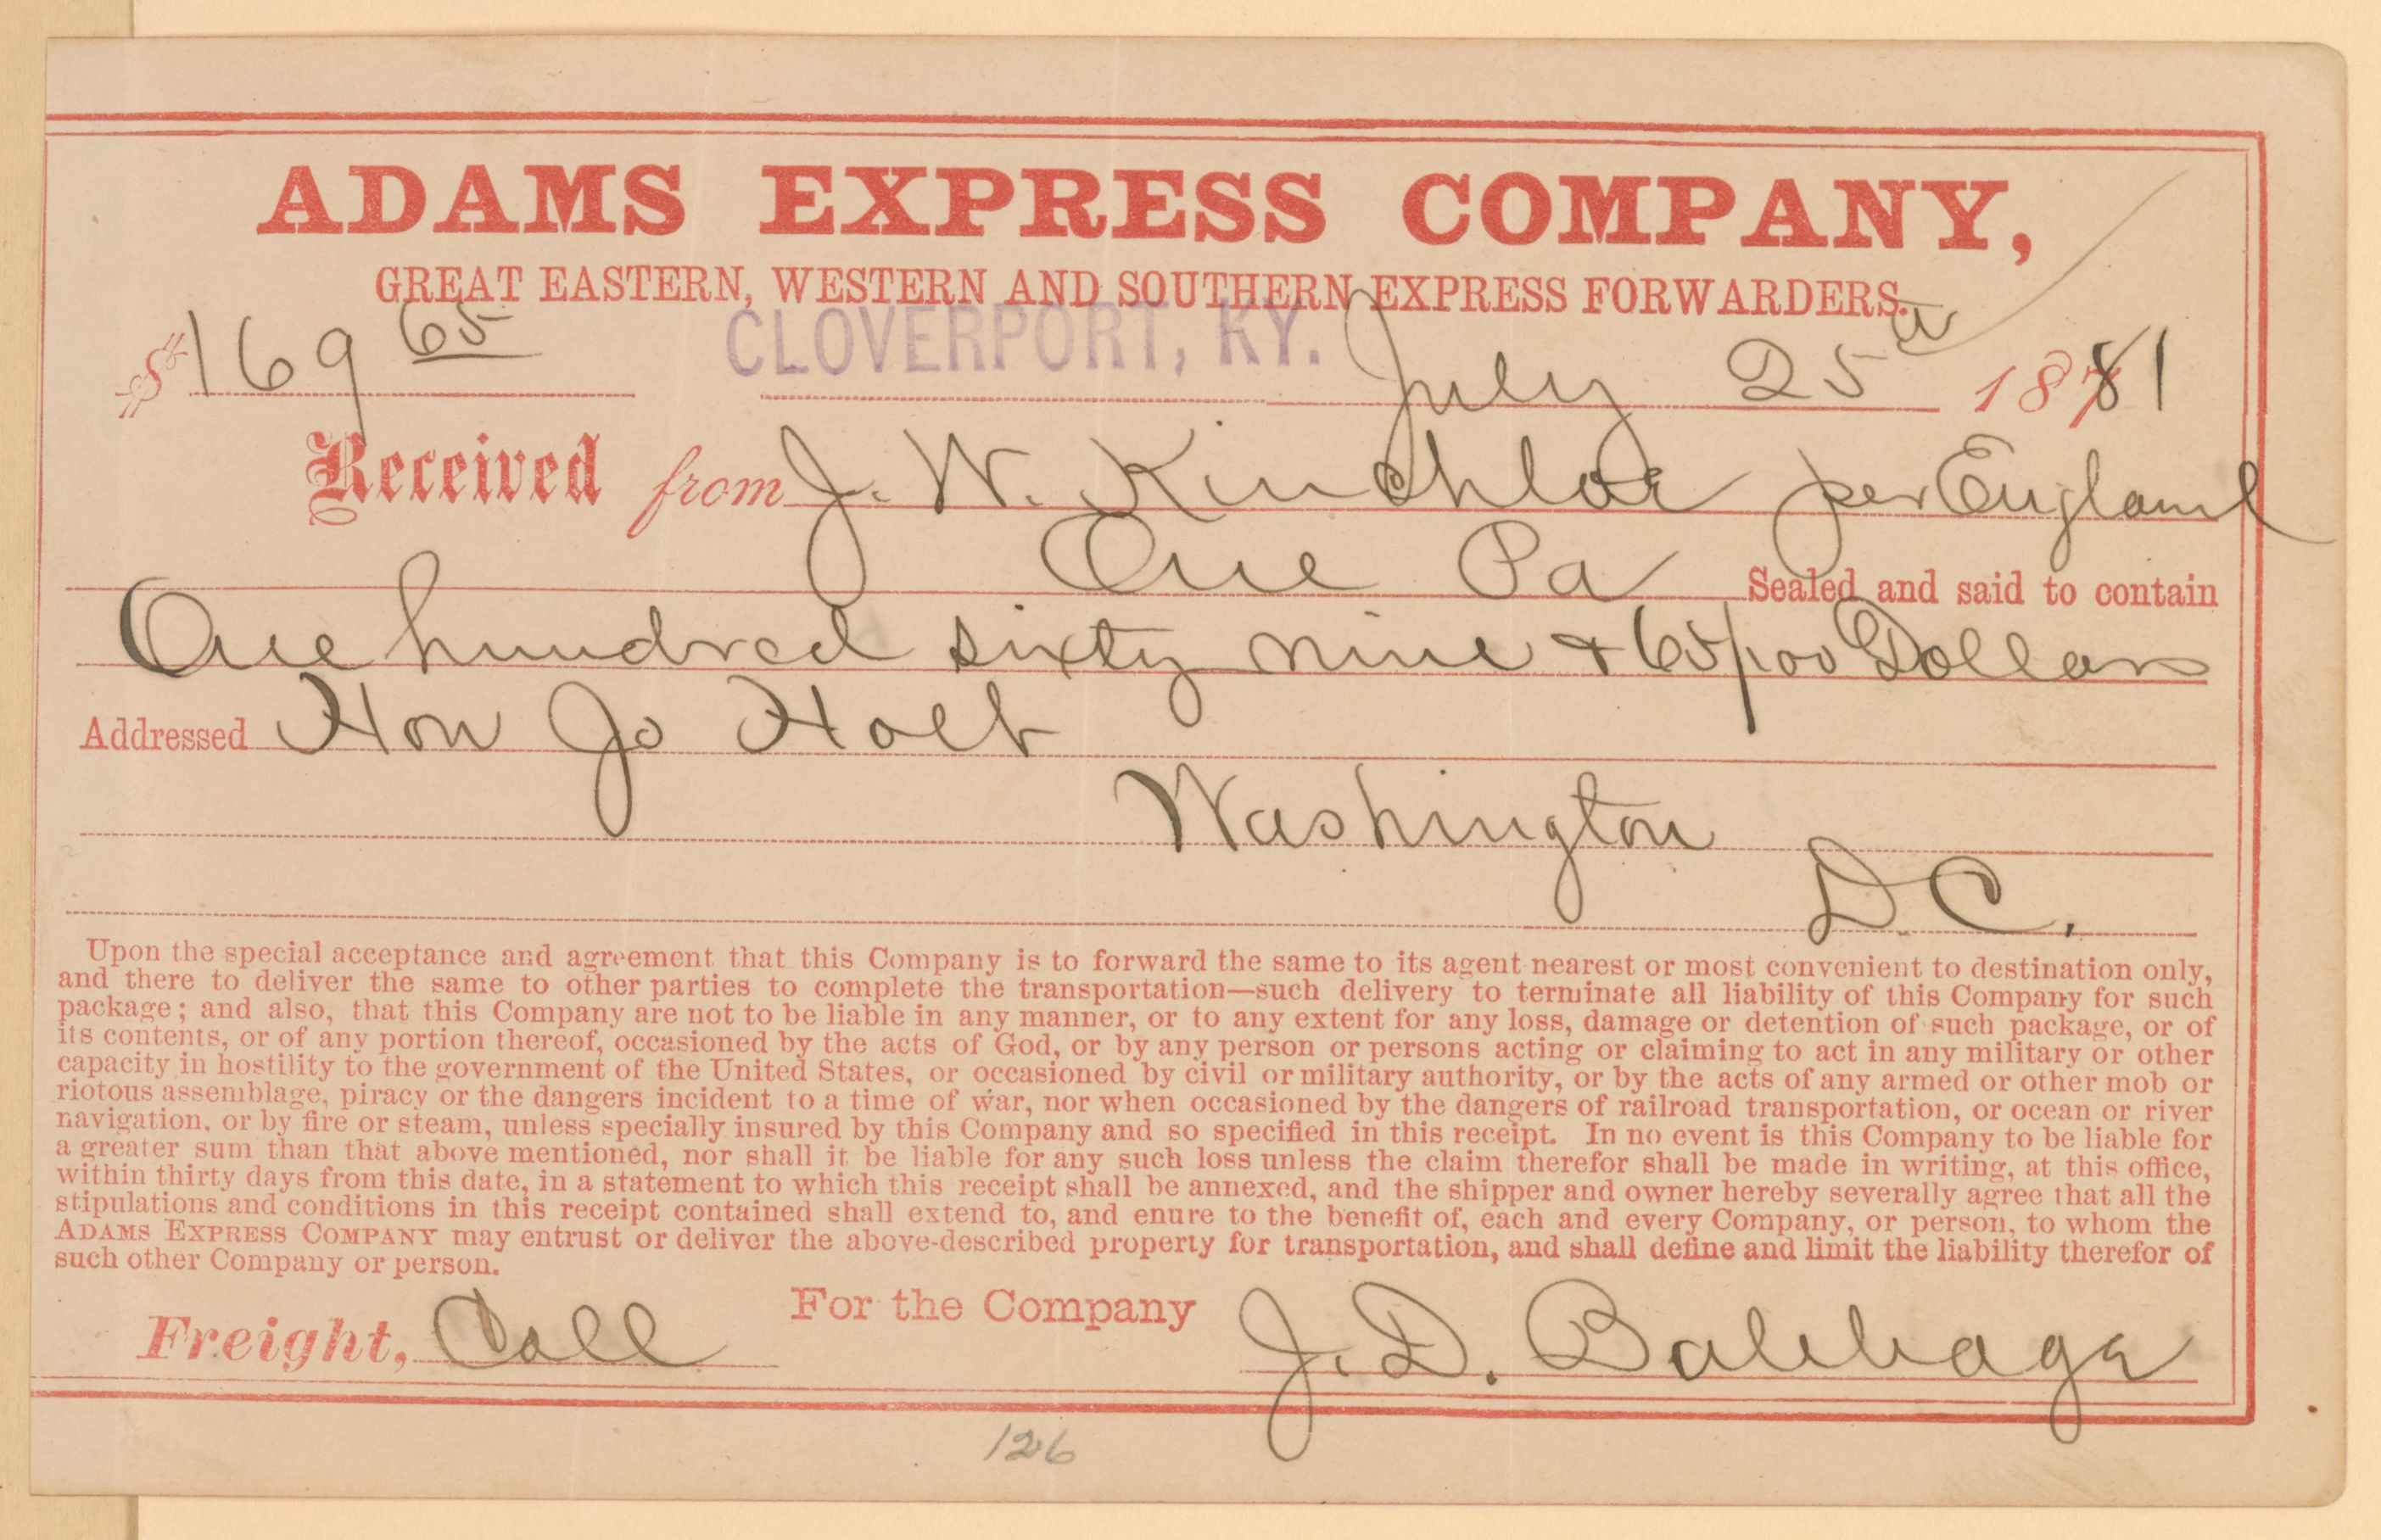 ADAMS EXPRESS COMPANY,
GREAT EASTERN, WESTERN AND SOUTHERN EXPRESS FORWARDERS.
$169 65 CLOVERPORT, KY. July 25th 1881
Received from J. W. Kinchloe per England
One Pa Sealed and said to contain
One hundred sixty nine & 65/100 Dollars
Addressed Hon Jo Holt
Washington
D.C.
Upon the special acceptance and agreement that this Company is to forward the same to its agent nearest or most convenient to destination only,
and there to deliver the same to other parties to complete the transportation—such delivery to terminate all liability of this Company for such
package; and also, that this Company are not to be liable in any manner, or to any extent for any loss, damage or detention of such package, or of
its contents, or of any portion thereof, occasioned by the acts of God, or by any person or persons acting or claiming to act in any military or other
capacity in hostility to the government of the United States, or occasioned by civil or military authority, or by the acts of any armed or other mob or
riotous assemblage, piracy or the dangers incident to a time of war, nor when occasioned by the dangers of railroad transportation, or ocean or river
navigation, or by fire or steam, unless specially insured by this Company and so specified in this receipt. In no event is this Company to be liable for
a greater sum than that above mentioned, nor shall it be liable for any such loss unless the claim therefor shall be made in writing, at this office,
within thirty days from this date, in a statement to which this receipt shall be annexed, and the shipper and owner hereby severally agree that all the
stipulations and conditions in this receipt contained shall extend to, and enure to the benefit of, each and every Company, or person, to whom the
ADAMS EXPRESS COMPANY may entrust or deliver the above-described property for transportation, and shall define and limit the liability therefor of
such other Company or person.
Freight, Coll For the Company J. D. Babbage
126